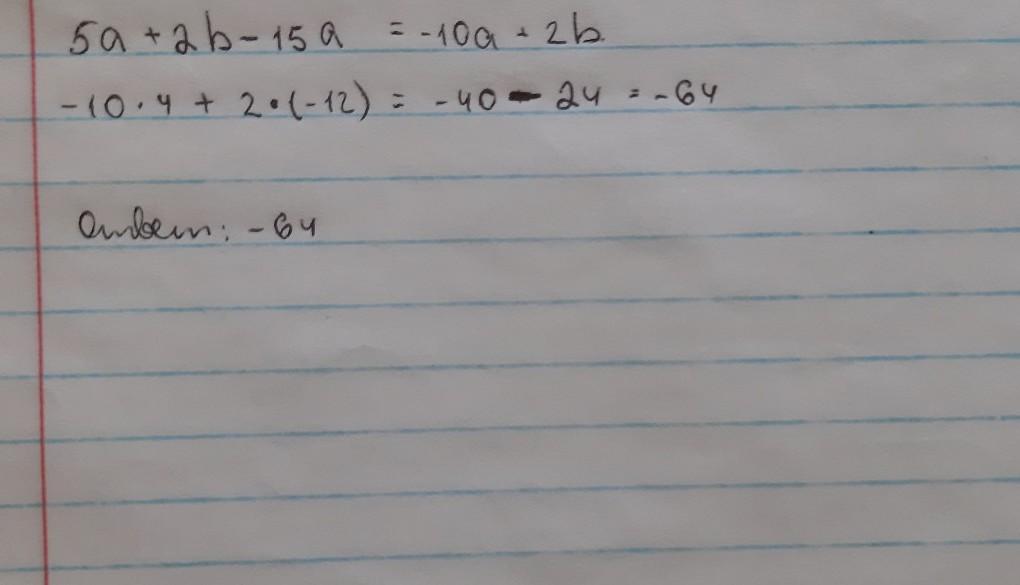 5a + 2b - 15a = -10a + 2b
-10 · 4 + 2 · (-12) = -40 - 24 = -64
Ответ: -64